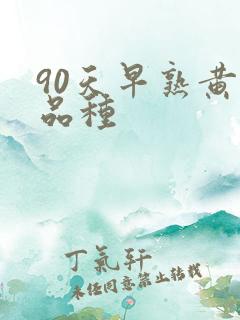 90天早熟黄
品种
丁氣轩
未经同意禁止转载